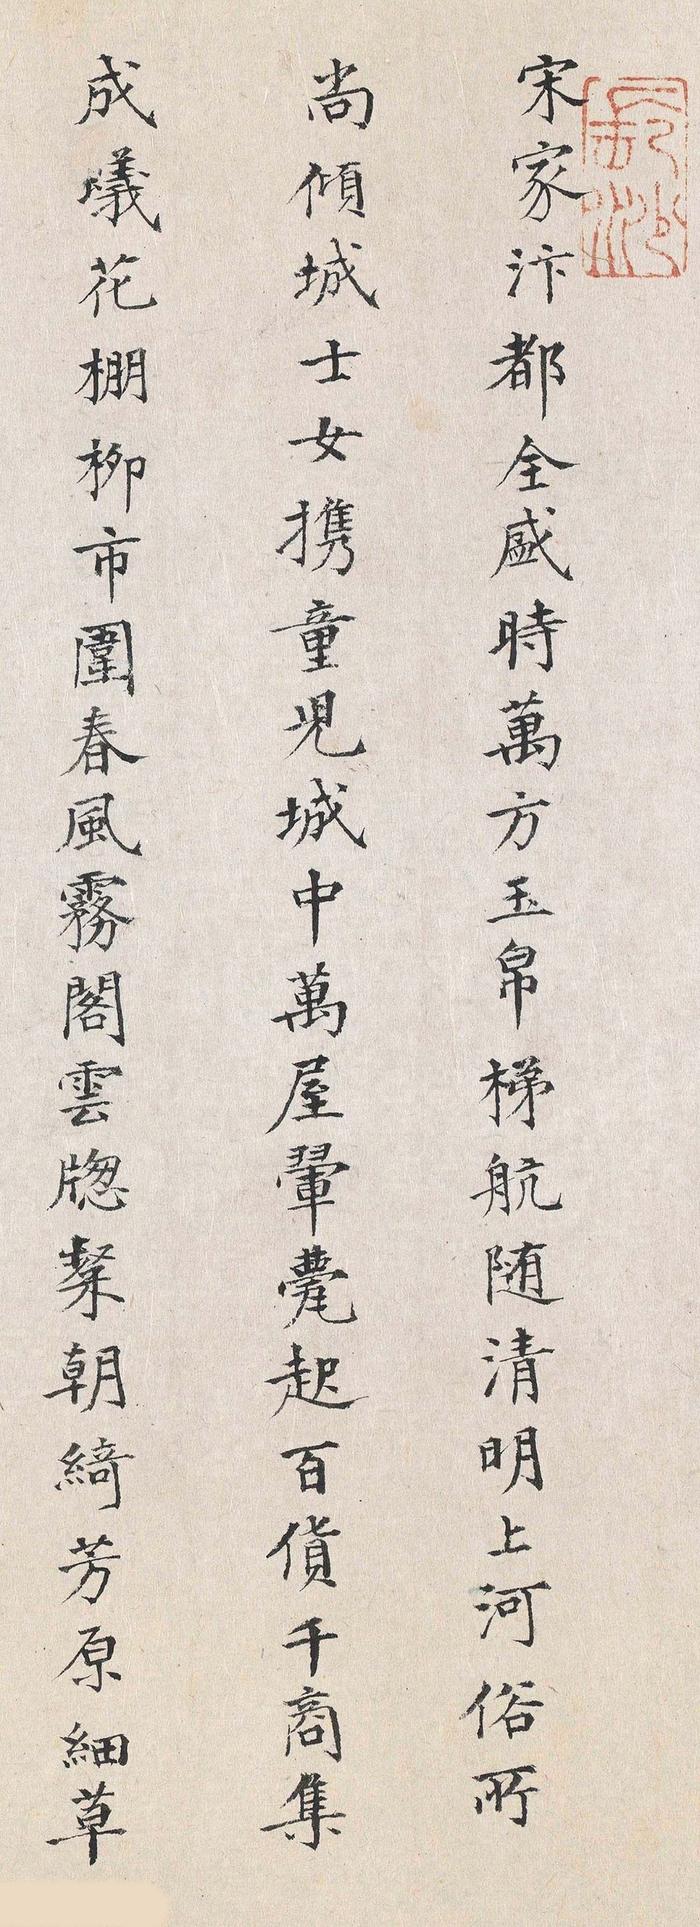 宋家汴都全盛時萬方玉帛梯航随清明上河俗所
尚傾城士女携童児城中萬屋翬甍起百貨千商集
成蟻花棚柳市圍春風霧閣雲牎粲朝綺芳原細草